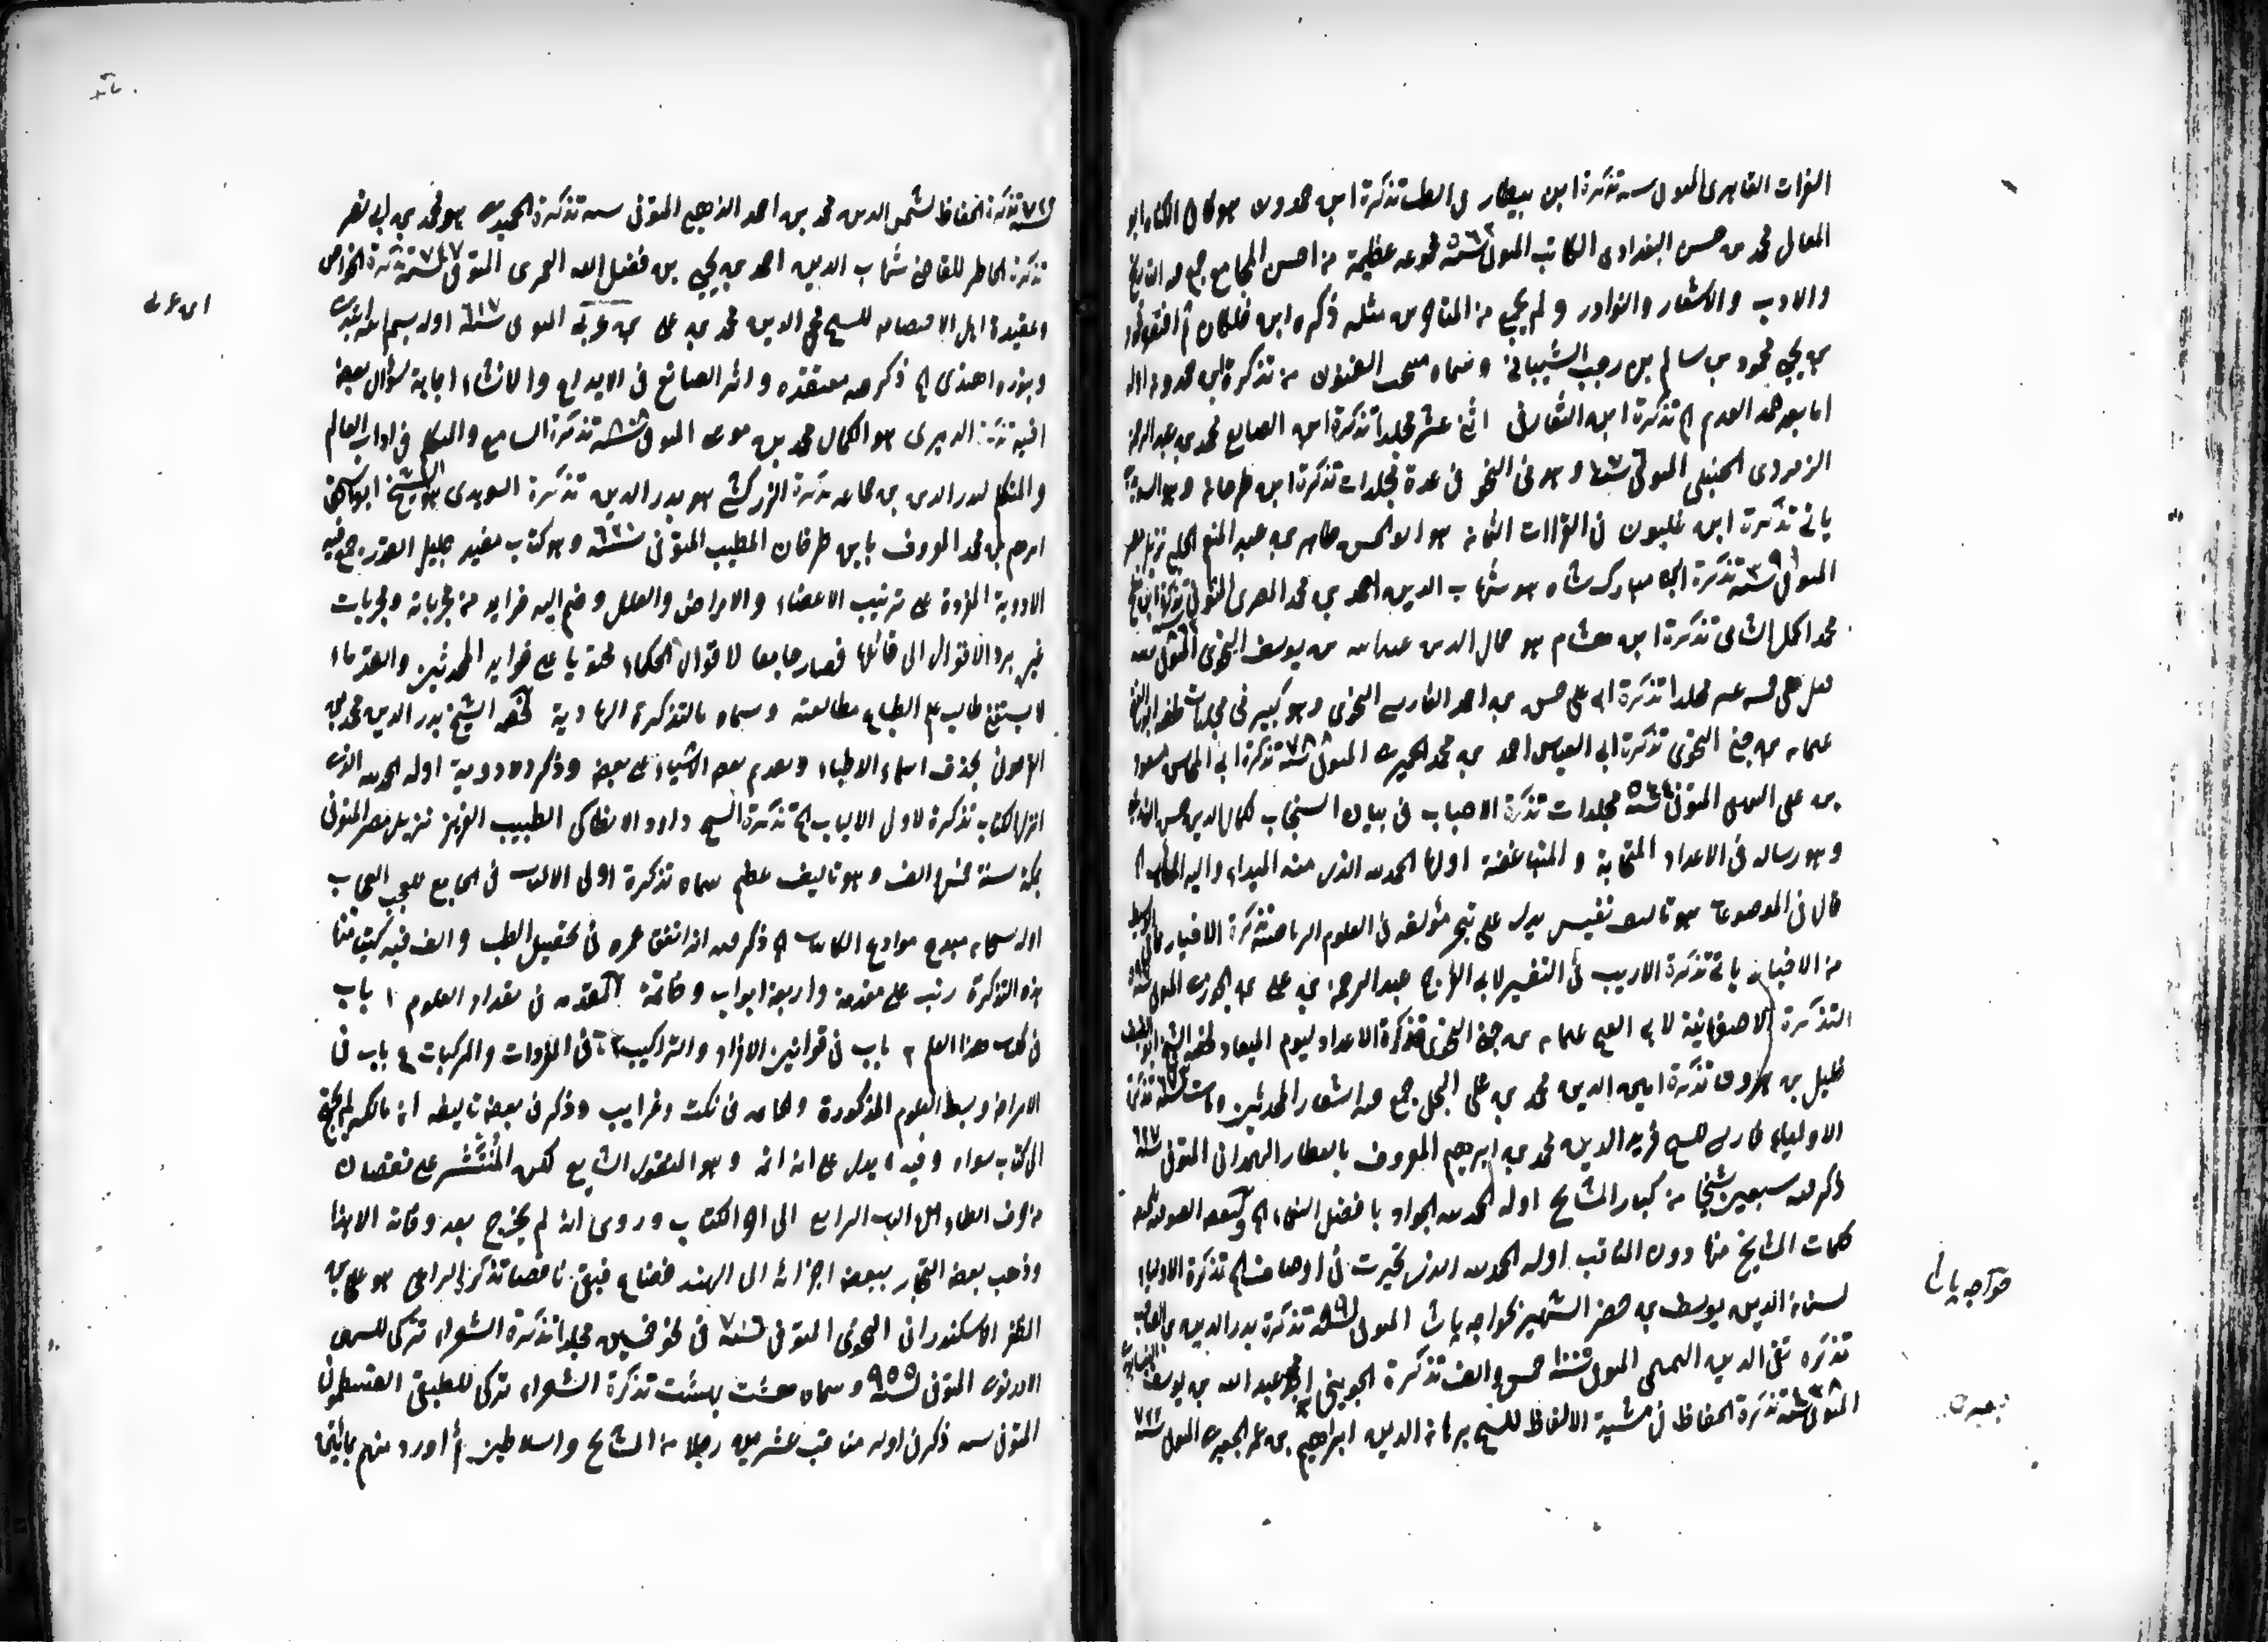 الفرات القاهرى المتوفى سنة تذكرة ابن بيطار فى الطب تذكرة ابن حمدون هو كافى الكفاة ابو
المعالى محمد بن حسن البغدادى الكاتب المتوفى سنة ٥٦٢ مجموعه عظيمة من احسن المجاميع جمع فيه التاريخ
والادب والاشعار والنوادر ولم يجمع من المتاخرين مثله ذكره ابن خلكان ثم اختصره
بن يحيى محمود بن سالم بن رجب الشيبانى وسماه الفنون من تذكرة ابن حمدون اوله
اما بعد حمد القديم الخ تذكرة ابن الشعار فى اثنى عشر مجلدا تذكرة ابن الصايغ محمد بن عبد الرحمن
الزمردى الحنفى المتوفى سنة ٧٧٦ وهو فى النحو فى عدة مجلدات تذكرة ابن طرخان وهو
ياتى تذكرة ابن غلبون فى القراات الثمانه هو ابو الحسن طاهر بن عبد المنعم الحلبى نزيل مصر
المتوفى سنة ٣٩٩ تذكرة ابن مبارك شاه هو شهاب الدين احمد بن محمد المصرى المتوفى
محمد اكمل الشامى تذكرة ابن هشام هو جمال الدين عبدالله بن يوسف النحوى المتوفى سنة
قيل هى خمسه عشر مجلدا تذكرة ابى على حسن بن احمد الفارسى النحوى وهو كبير فى مجلدات لخصه ابو الفتح
عثمان بن جنى النحوى تذكرة ابى العباس احمد بن محمد المتوفى سنة تذكرة ابى المحاسن مسعود
بن على البيهقى المتوفى سنة ٥٤٤ مجلدات تذكرة الاحباب فى بيان السنجاب لكمال الدين حسن الفارسى
وهو رساله فى الاعداد المتحابة والمتباغضة اولها الحمد لله الذى منه المبداء واليه المآب الخ
قال فى الموضوعات هو تاليف نفيس يدل على تبحر مؤلفه فى العلوم الرياضية تذكرة الاخيار
من الاخبار ياتى تذكرة الاريب فى التفسير لابى الفرج عبد الرحمن بن على بن الجوزى المتوفى سنة
التذكرة الاصفهانية لابى الفتح عثمان بن جنى النحوى تذكرة الاعداد ليوم الميعاد لخصه الشيخ
خليل بن هارون تذكرة امين الدين محمد بن على المحلى جمع فيه اشعار المحدثين ومات سنة ٦٧٣ تذكرة
الاولياء فارسى للشيخ فريد الدين محمد بن ابراهيم المعروف بالعطار الهمدانى المتوفى سنة ٦٢٧
ذكر فيه سبعين شيخا من كبار المشايخ اوله الحمد لله الجواد بافضل النعماء الخ ولبعض الصوفيه
كلمات المشايخ منها دون المناقب اوله الحمد لله الذى تحيرت فى اوصافه الخ تذكرة الاولياء
لسنان الدين يوسف بن خضر الشهير بخواجه پاشا المتوفى سنة ٨٩١ تذكرة بدر الدين بن الصاحب
تذكره تقى الدين التميمى المتوفى سنة ١٠٠٥ خمس والف تذكرة الجوينى ابو محمد عبد الله بن يوسف
المتوفى سنة ٤٣٨ تذكرة الحفاظ فى مشتبه الالفاظ للشيخ برهان الدين ابراهيم بن عمر الجعبرى المتوفى سنة ٧٣٢
خواجه پاشا
سنة ٧٣٢ تذكرة الحفاظ لشمس الدين محمد بن احمد الذهبى المتوفى سنه تذكرة الحميدى هو محمد بن ابى نصر
تذكرة الخاطر للقاضى شهاب الدين احمد بن يحيى بن فضل الله العمرى المتوفى سنة ٧٤٧ تذكرة الخواص
وعقيدة اهل الاختصاص للشيخ محى الدين محمد بن على بن عربى المتوفى سنة ٦١٧ اوله بسم الله
وبنوره اهتدى الخ ذكر فيه معتقده وانه الصانع فى الابداع والانشاء اجابة لسؤال بعض
اخيه تذكرة الدميرى هو الكمال محمد بن موسى المتوفى سنة ٨٠٨ تذكرة السامع والمتكلم فى اداب العالم
والمتعلم لبدر الدين بن جماعه تذكرة الزركشى هو بدر الدين تذكرة السويدى هو الشيخ ابو اسحق
ابرهيم بن محمد المعروف بابن طرخان المطبب المتوفى سنة ٦٩٠ وهو كتاب مفيد جليل القدر جمع فيه
الادوية المفردة على ترتيب الاعضاء والامراض والعلل وضم اليه فرايد من مجرباته ومجربات
غيره برد الاقوال الى قائلها فصار جامعا لاقوال الحكماء محتويا على فوايد المحدثين والقدماء
لا يستغنى طالب علم الطب عن مطالعته وسماه بالتذكرة الهادية لخصه الشيخ بدر الدين محمد بن
القوصونى بحذف اسماء الاطباء وتقديم بعض الاشياء على بعض وذكر الادوية اوله الحمد لله الذى
انزل الكتاب تذكرة لاولى الالباب الخ تذكرة الشيخ داود الانطاكى الطبيب الضرير نزيل مصر المتوفى
بمكة سنة خمس والف وهو تاليف عظيم سماه تذكرة اولى الالباب فى الجامع للعجب العجاب
اوله سبحان مبدع مواد الكائنات الخ ذكر فيه انه انفق عمره فى تحصيل الطب والف فيه كتبا منها
هذه التذكرة رتب على مقدمة واربعة ابواب وخاتمة المقدمه فى تعداد العلوم ١ باب
فى كليات هذا العلم ٢ باب فى قوانين الافراد والتراكيب ٣ فى المفردات والمركبات ٤ باب فى
الامراض وبسط العلوم المذكورة والخاتمه فى نكت وغرايب وذكر فى بعض تاليفه انه مالكه لم يحتج
الى كتاب سواه وفيه ما يدل على انه اتمه وهو المنقول الشايع لكن المنتشر على نقصان
من حرف الطاء من الباب الرابع الى اخر الكتاب وروى انه لم يخرج بعد وفاته الا هذا
وذهب بعض التجار ببعض اجزائه الى الهند فضاع فبقى ناقصا تذكرة الوداعى هو على بن
المظفر الاسكندرانى النحوى المتوفى سنة ٧١٦ فى نحو خمسين مجلدا تذكرة الشعراء تركى للسهى
الادرنوى المتوفى سنة ٩٥٥ وسماه هشت بهشت تذكرة الشعراء تركى للطيفى القسطمونى
المتوفى سنه ذكر فى اوله مناقب عشرين رجلا من المشايخ والسلاطين ثم اورد منهم
ابن عربى